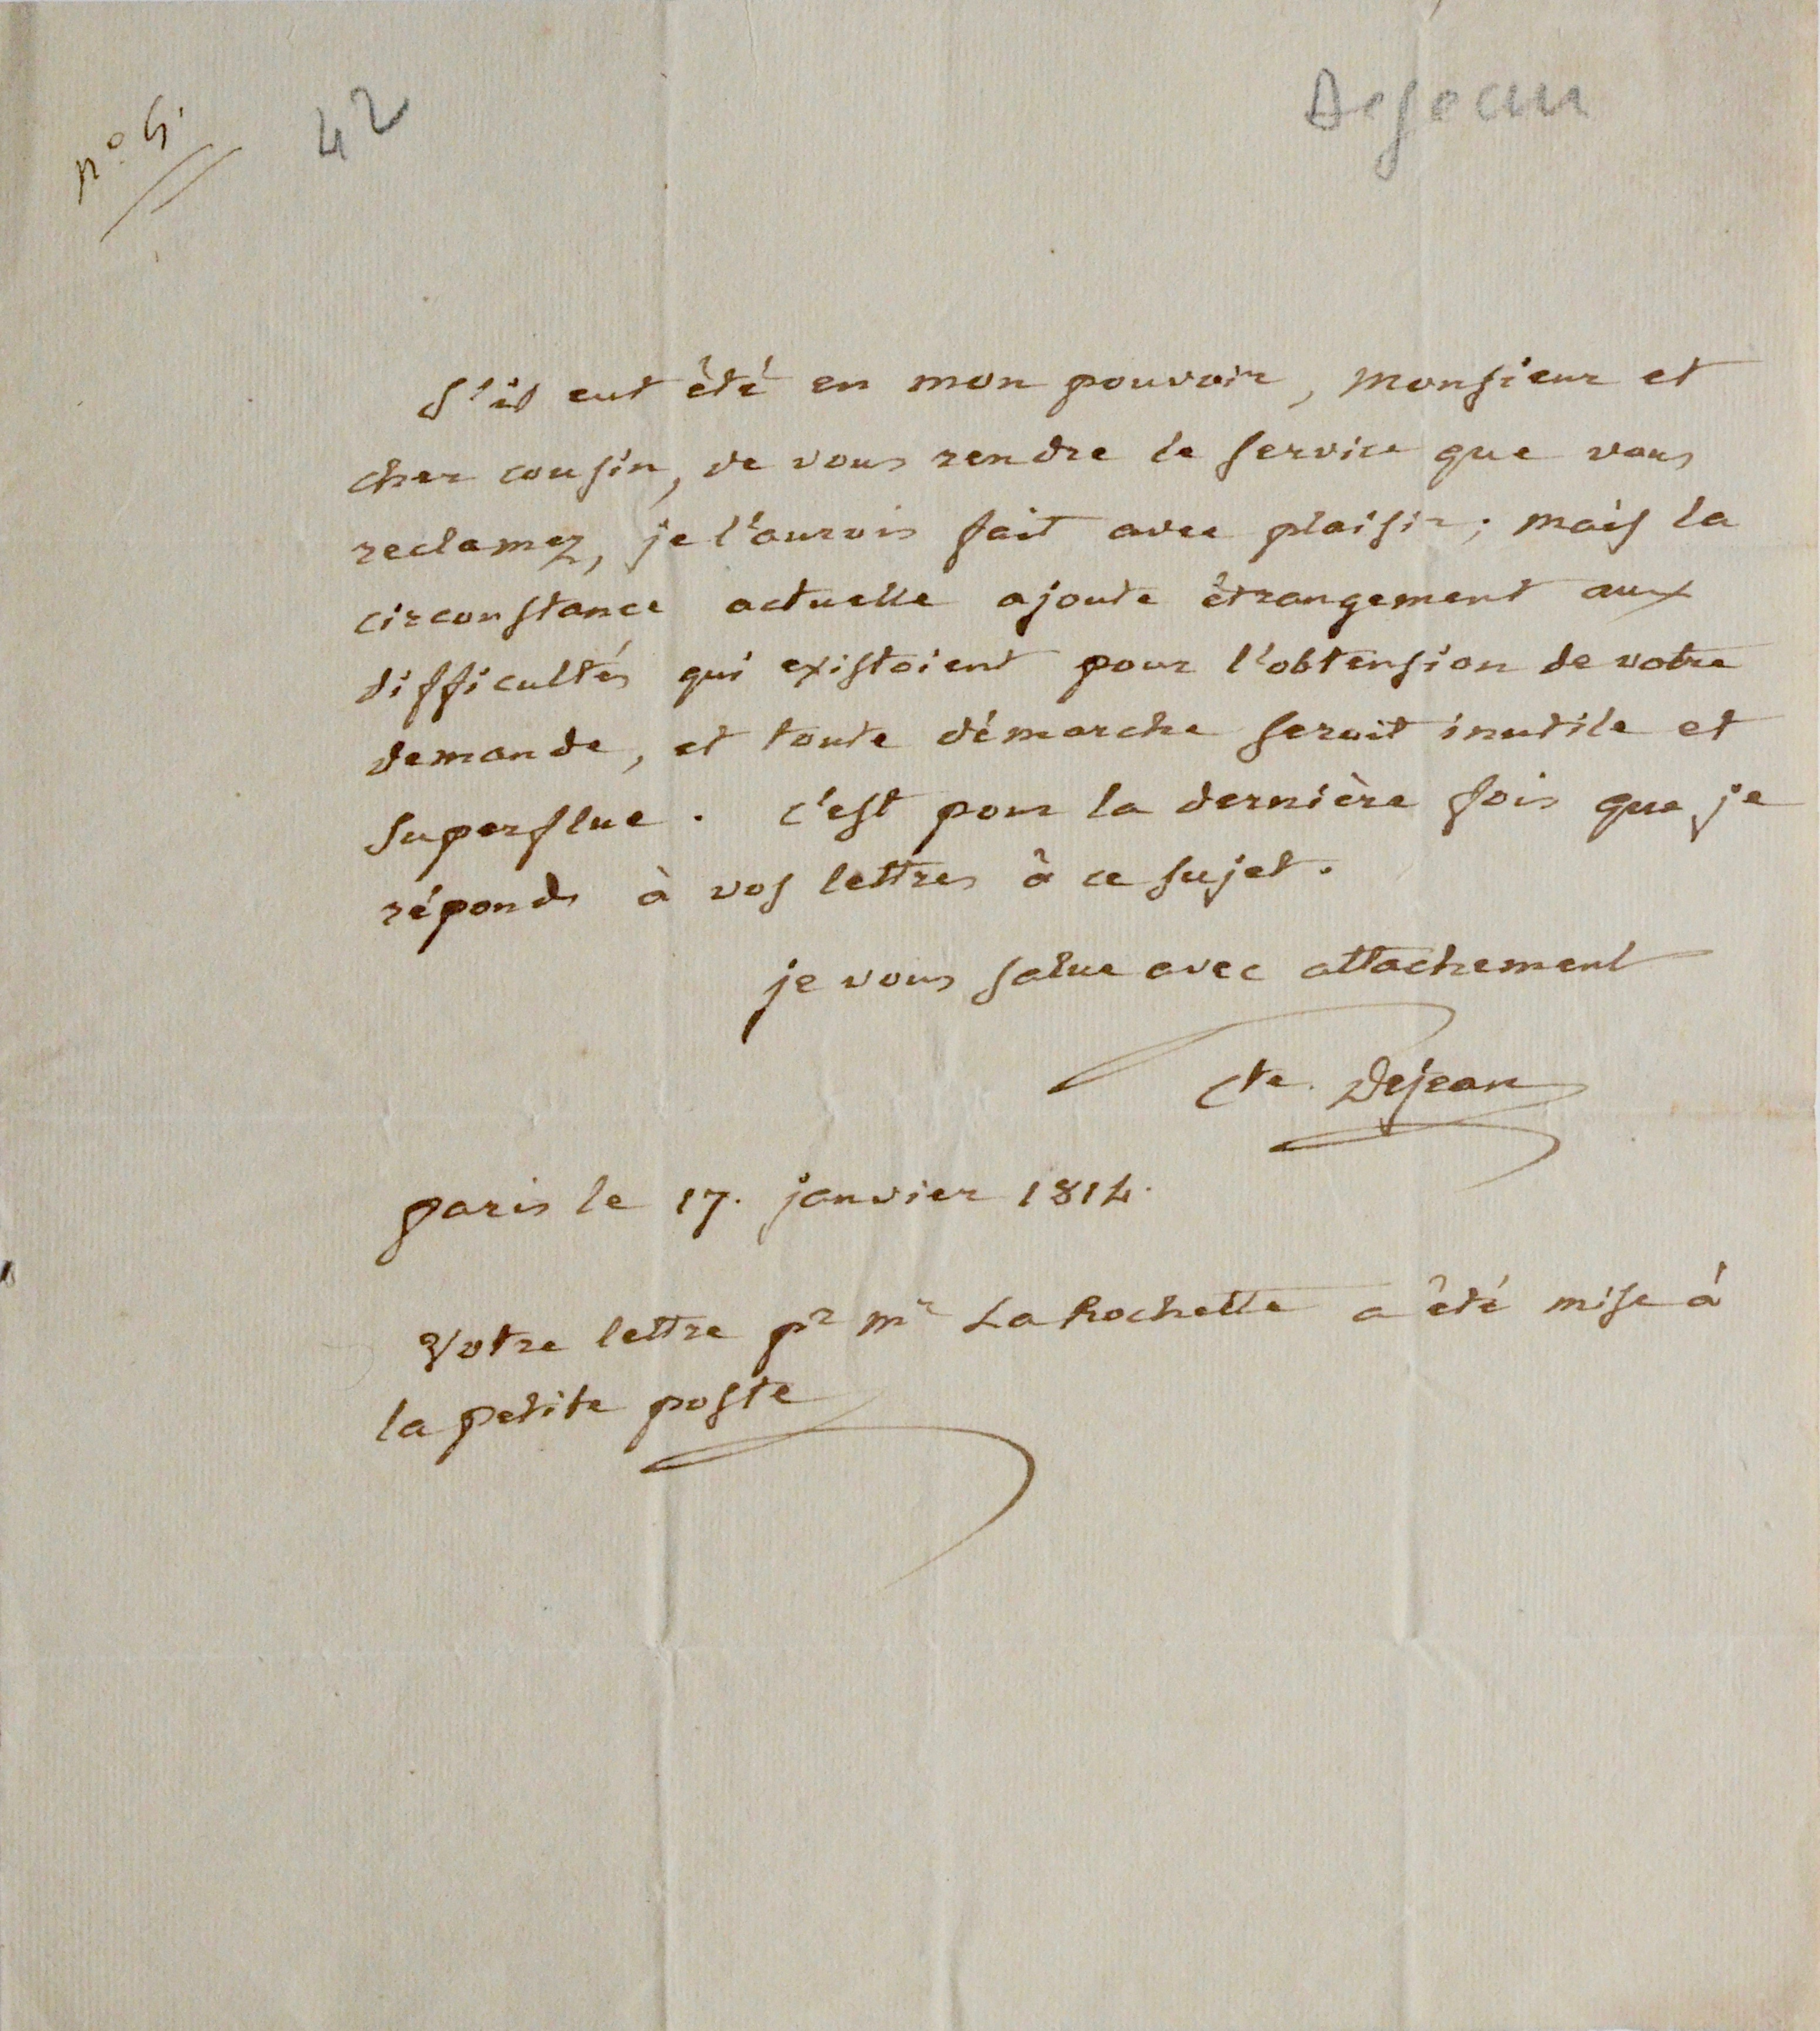 n.º 5.
42
Dejean
S'il eut êté en mon pouvoir, Monsieur et
cher cousin, de vous rendre le service que vous
reclamez, je l'aurois fait avec plaisir; mais la
circonstance actuelle ajoute êtrangement aux
difficultés qui existoient pour l'obtension de votre
demande, et toute démarche seroit inutile et
superflue. c'est pour la dernière fois que je
réponds à vos lettres à ce sujet.
je vous salue avec attachement
Cte. Dejean
paris le 17. janvier 1814.
Votre lettre pr mr La Rochette a êté mise à
la petite poste